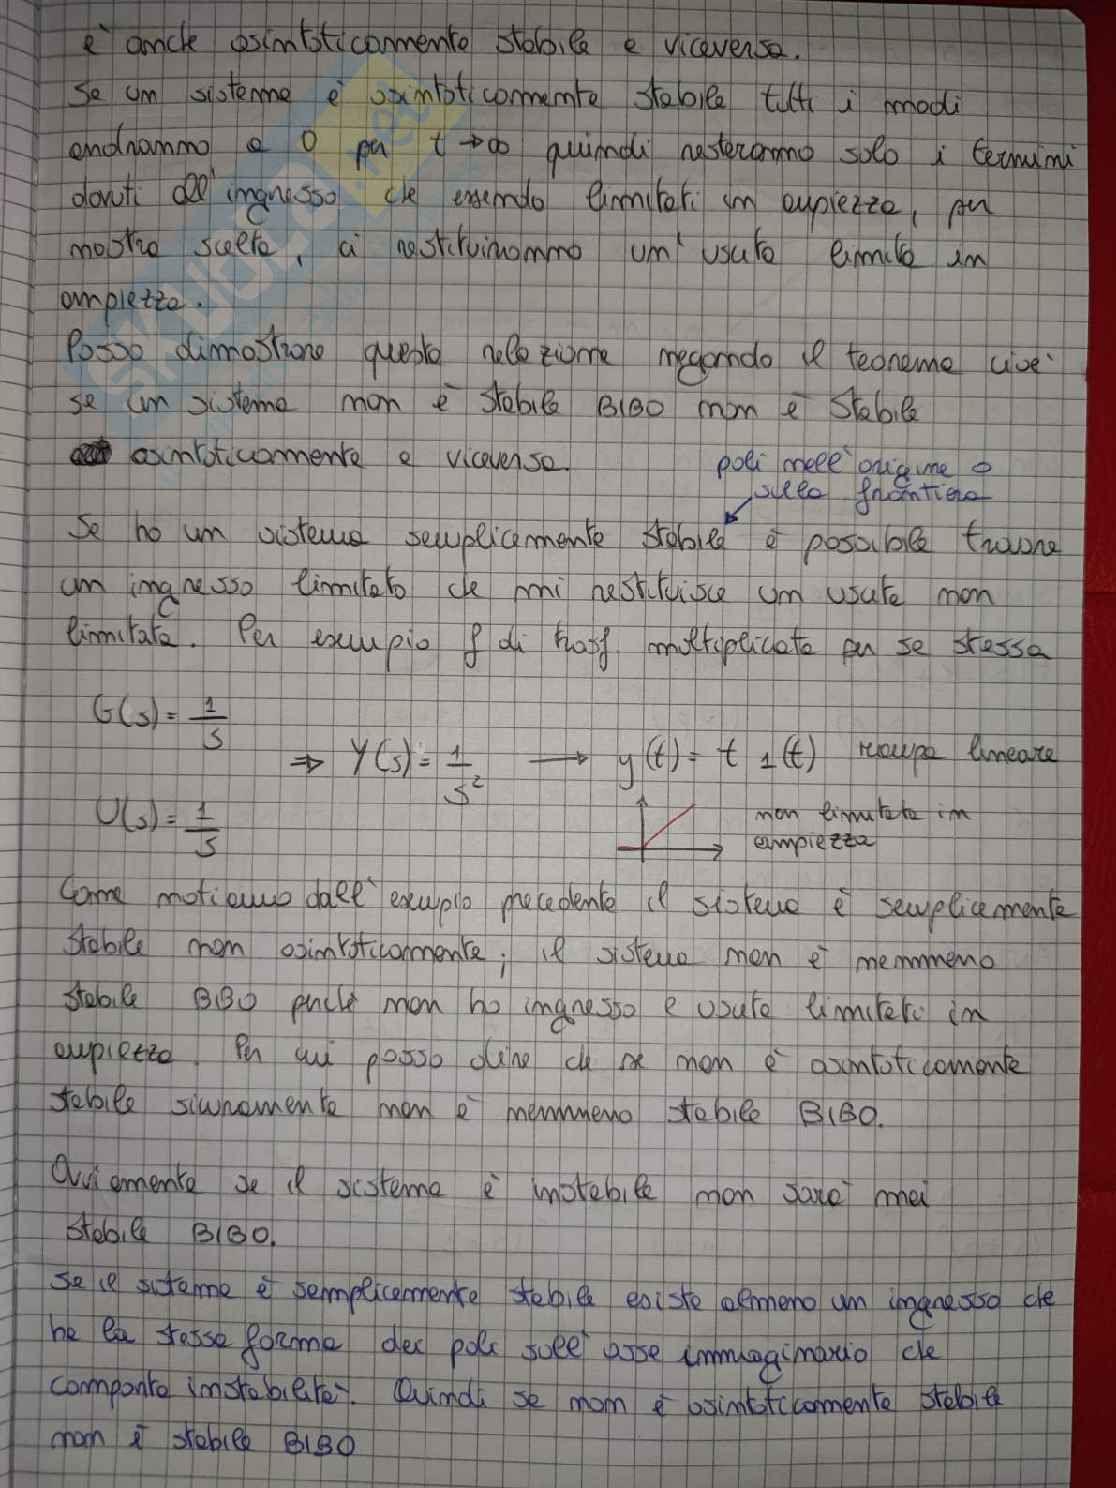 è anche asintoticamente stabile e viceversa.
Se un sistema è asintoticamente stabile tutti i modi
andranno a 0 per t→∞ quindi resteranno solo i termini
dovuti all'ingresso che essendo limitati in ampiezza, per
nostra scelta, ci restituiranno un'uscita limita in
ampiezza.
Posso dimostrare questa relazione negando il teorema cioè
se un sistema non è stabile BIBO non è stabile
asintoticamente e viceversa.
poli nell'origine o
sulla frontiera
Se ho un sistema semplicemente stabile è possibile trovare
un ingresso limitato che mi restituisce un uscita non
limitata. Per esempio f di trasf moltiplicata per se stessa
G(s) = 1/s
⇒ Y(s) = 1/s² → y(t) = t 1(t) rampa lineare
U(s) = 1/s
non limitata in
ampiezza
Come notiamo dall'esempio precedente il sistema è semplicemente
stabile non asintoticamente; il sistema non è nemmeno
stabile BIBO perché non ho ingresso e uscita limitati in
ampiezza. Per cui posso dire che se non è asintoticamente
stabile sicuramente non è nemmeno stabile BIBO.
Ovviamente se il sistema è instabile non sarà mai
stabile BIBO.
Se il sistema è semplicemente stabile esiste almeno un ingresso che
ha la stessa forma dei poli sull'asse immaginario che
comporta instabilità. Quindi se non è asintoticamente stabile
non è stabile BIBO